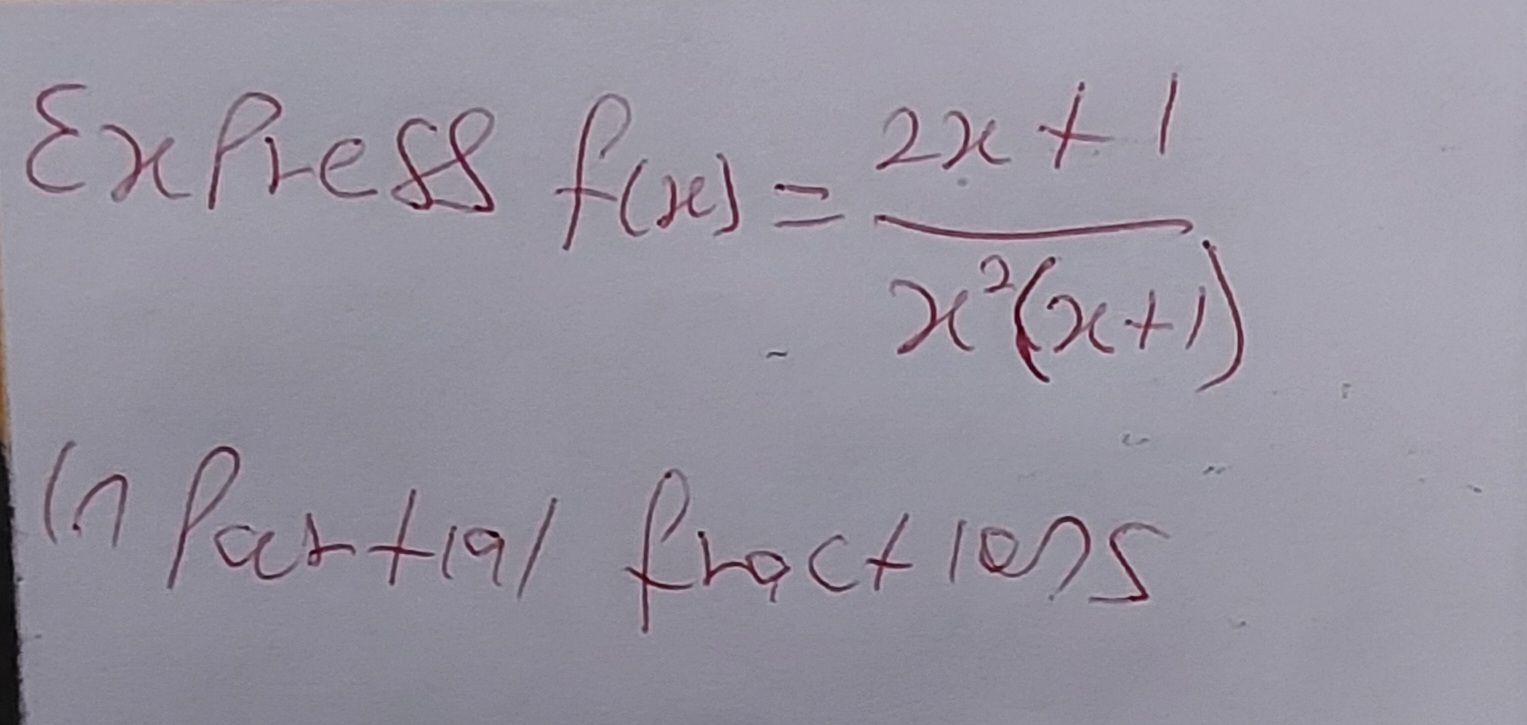 Express f(x) = \frac{2x+1}{x^2(x+1)}
in Partial fractions